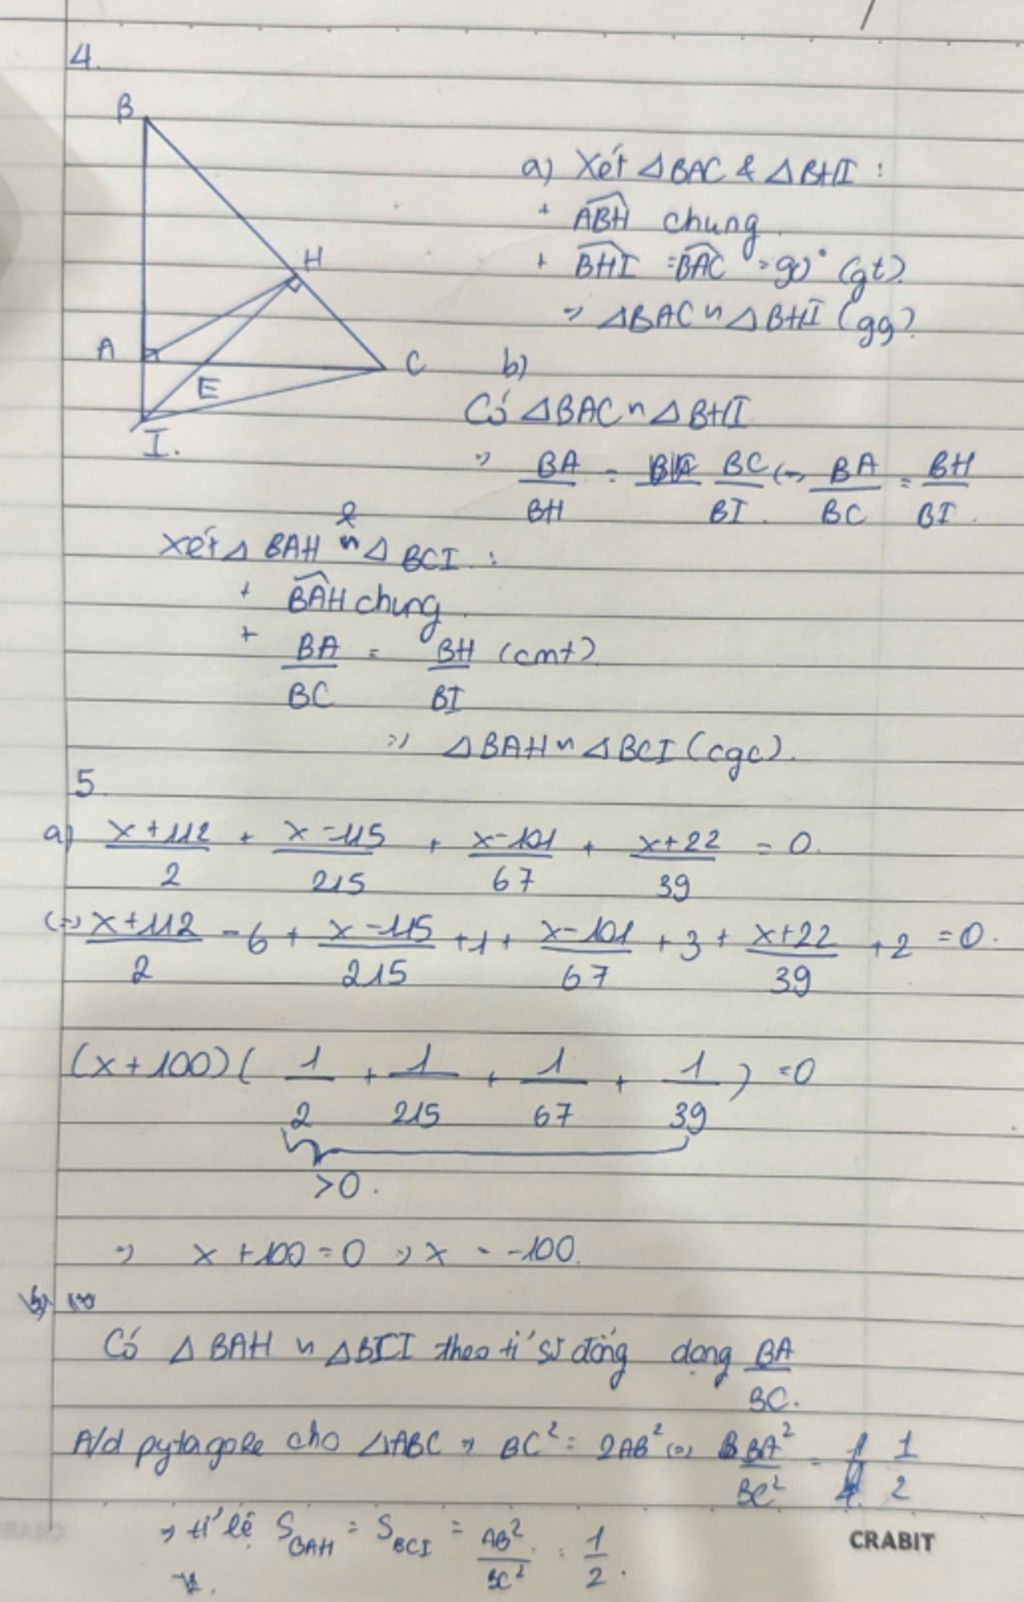 4.
B
H
A
C
E
I.
a) Xét △BAC & △BHI :
+ ABH chung
+ BHI = BAC = 90° (gt).
=> △BAC ∽ △BHI (gg).
b)
Có △BAC ∽ △BHI
=> BA/BH = BC/BI <=> BA/BC = BH/BI.
Xét △BAH & △BCI :
+ BAH chung
+ BA/BC = BH/BI (cmt)
=> △BAH ∽ △BCI (cgc).
5
a) x+112/2 + x-115/215 + x-101/67 + x+22/39 = 0.
<=> x+112/2 - 6 + x-115/215 + 1 + x-101/67 + 3 + x+22/39 + 2 = 0.
(x+100)( 1/2 + 1/215 + 1/67 + 1/39 ) = 0
>0.
=> x+100 = 0 => x = -100.
Có △BAH ∽ △BCI theo tỉ số đồng dạng BA/BC.
A/d pytagore cho △ABC => BC² = 2AB² <=> BA²/BC² = 1/2
=> tỉ lệ S BAH = S BCI = AB²/BC² = 1/2.
CRABIT